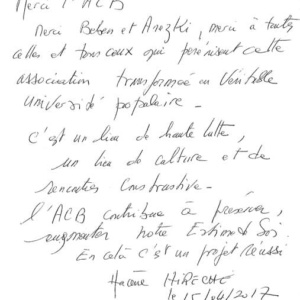 Merci l'ACB
Merci Beben et Arezki, merci à toutes
celles et tous ceux qui pérénisent cette
association transformée en Véritable
Université populaire -
C'est un lieu de haute lutte,
un lieu de culture et de
rencontres constructive -
l'ACB contribue à préserver,
augmenter notre Estime de Soi.
En celà c'est un projet réussi
Hacène HIRECHE
le 15/04/2017